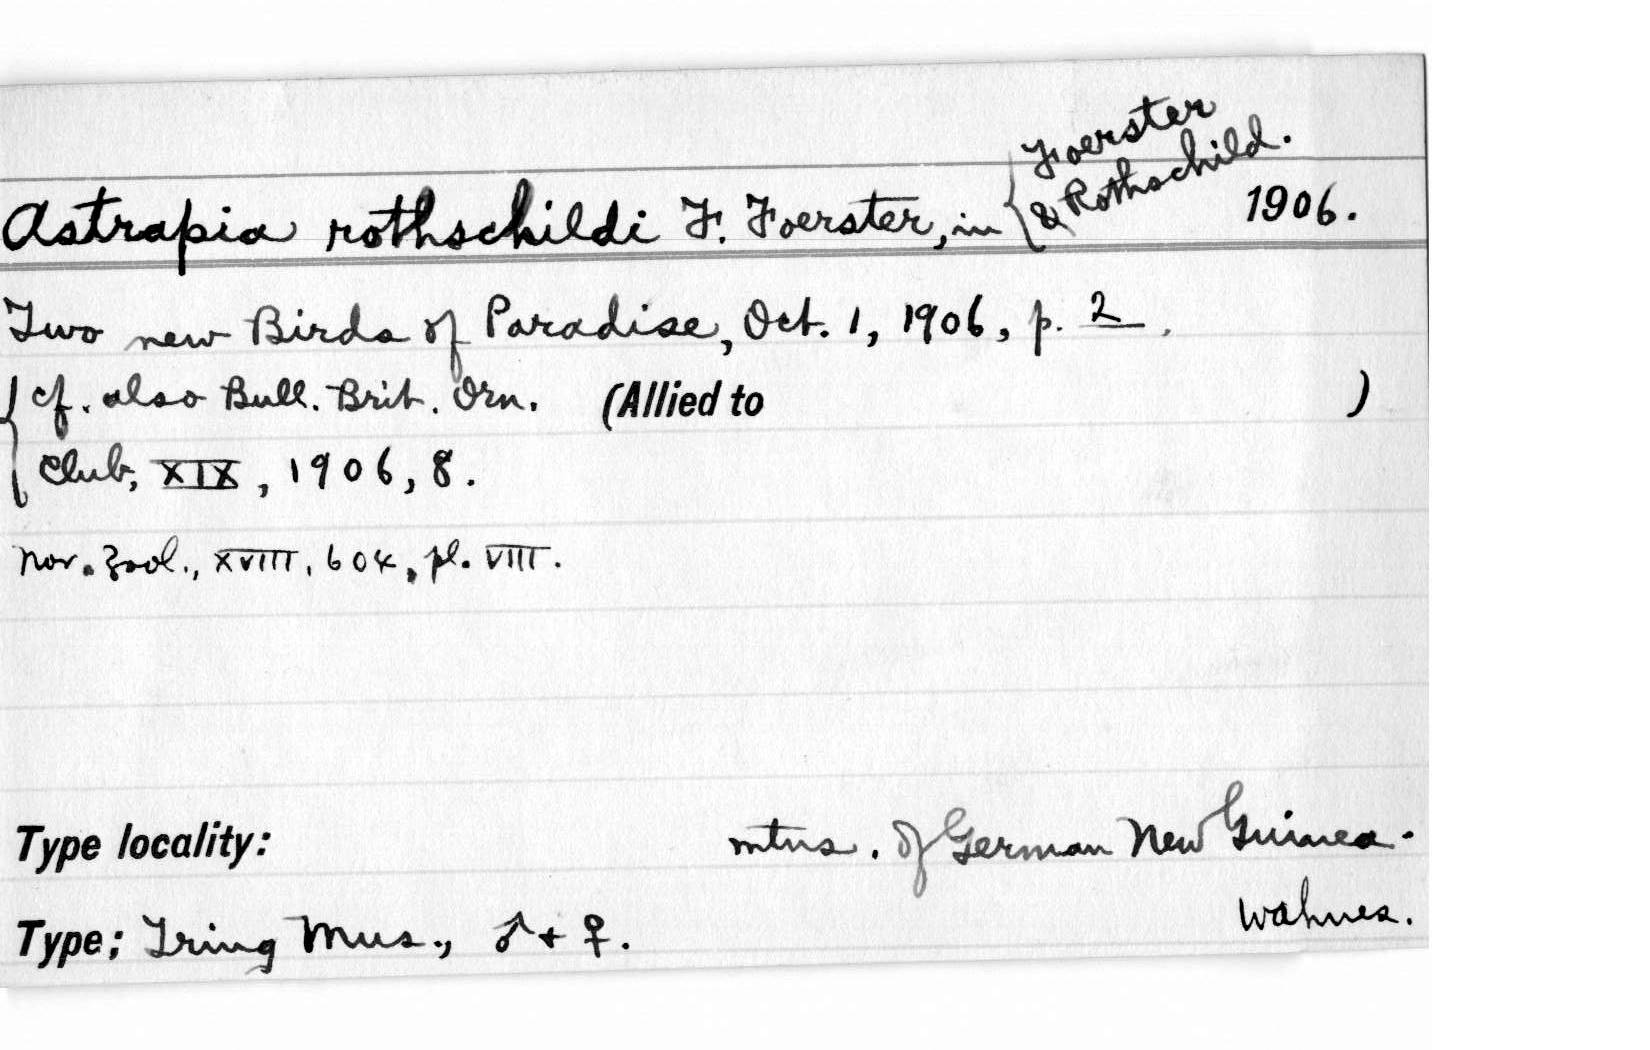 Astrapia rothschildi F. Foerster, in { Foerster & Rothschild. 1906.
Two new Birds of Paradise, Oct. 1, 1906, p. 2.
{ cf. also Bull. Brit. Orn. (Allied to )
Club, XIX, 1906, 8.
Nov. Zool., XVIII, 604, pl. VIII.
Type locality: mtns. of German New Guinea.
Wahnes.
Type; Tring Mus., ♂ + ♀.